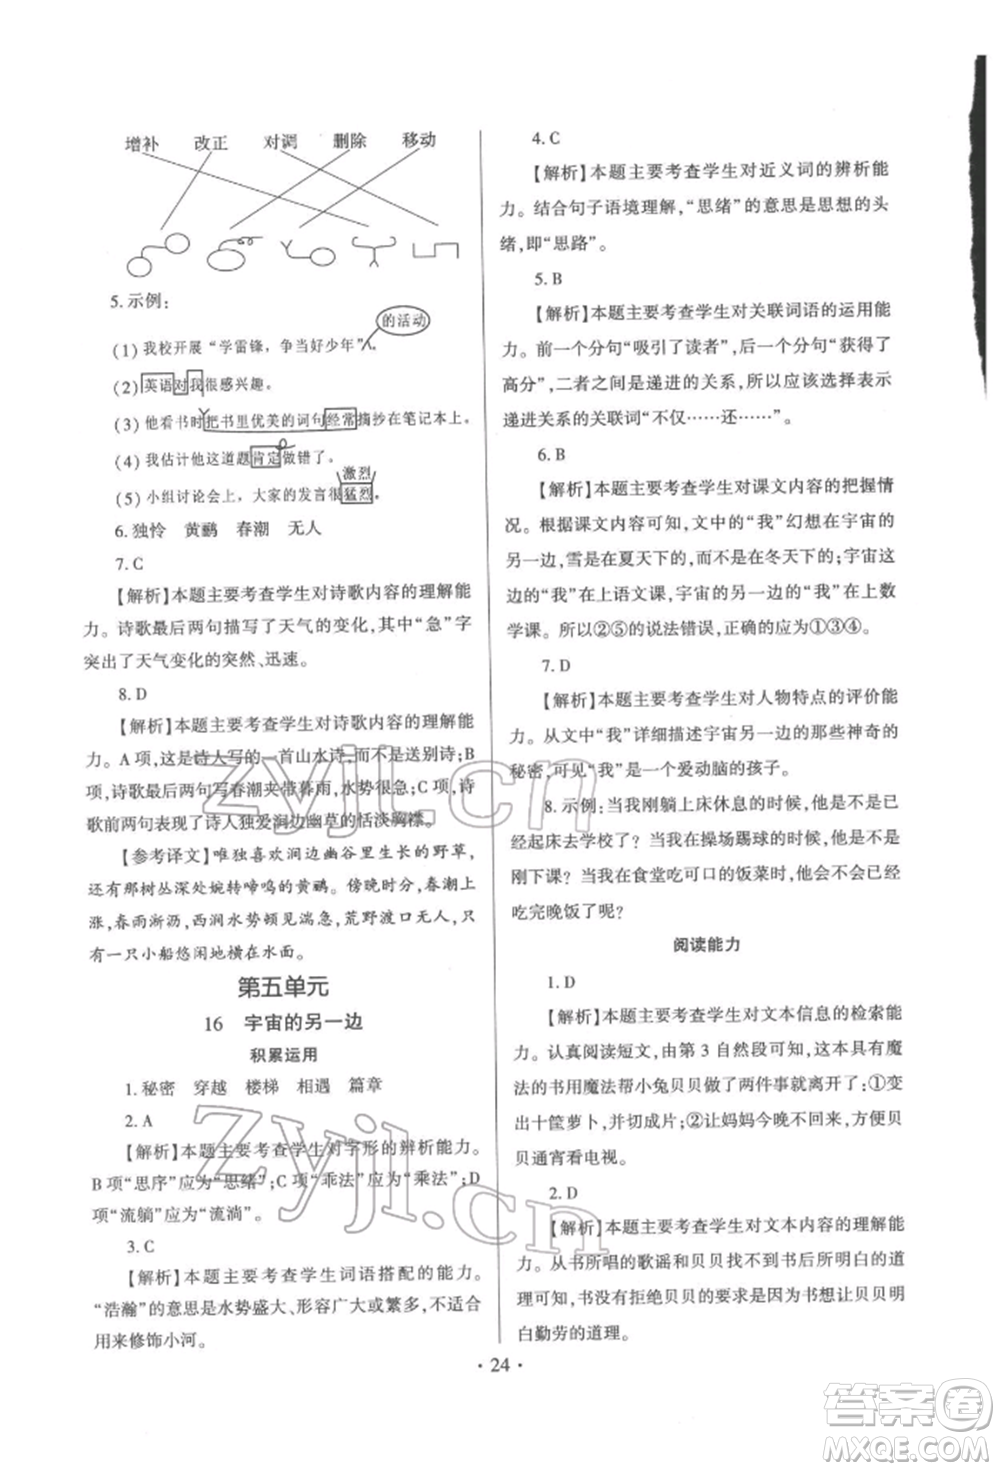 增补 改正 对调 删除 移动
5. 示例：
的活动
(1) 我校开展“学雷锋，争当好少年”。
(2) 英语对我很感兴趣。
(3) 他看书时把书里优美的词句经常摘抄在笔记本上。
(4) 我估计他这道题肯定做错了。
激烈
(5) 小组讨论会上，大家的发言很猛烈。
6. 独怜 黄鹂 春潮 无人
7. C
【解析】本题主要考查学生对诗歌内容的理解能
力。诗歌最后两句描写了天气的变化，其中“急”字
突出了天气变化的突然、迅速。
8. D
【解析】本题主要考查学生对诗歌内容的理解能
力。A 项，这是诗人写的一首山水诗，而不是送别诗；B
项，诗歌后两句写春潮夹带暮雨，水势很急；C 项，诗
歌前两句表现了诗人独爱涧边幽草的恬淡胸襟。
【参考译文】唯独喜欢涧边幽谷里生长的野草，
还有那树丛深处婉转啼鸣的黄鹂。傍晚时分，春潮上
涨，春雨淅沥，西涧水势顿见湍急，荒野渡口无人，只
有一只小船悠闲地横在水面。
第五单元
16 宇宙的另一边
积累运用
1. 秘密 穿越 楼梯 相遇 篇章
2. A
【解析】本题主要考查学生对字形的辨析能力。
B 项“思序”应为“思绪”；C 项“乖法”应为“乘法”；D
项“流躺”应为“流淌”。
3. C
【解析】本题主要考查学生词语搭配的能力。
“浩瀚”的意思是水势盛大、形容广大或繁多，不适合
用来修饰小河。
4. C
【解析】本题主要考查学生对近义词的辨析能
力。结合句子语境理解，“思绪”的意思是思想的头
绪，即“思路”。
5. B
【解析】本题主要考查学生对关联词语的运用能
力。前一个分句“吸引了读者”，后一个分句“获得了
高分”，二者之间是递进的关系，所以应该选择表示
递进关系的关联词“不仅……还……”。
6. B
【解析】本题主要考查学生对课文内容的把握情
况。根据课文内容可知，文中的“我”幻想在宇宙的
另一边，雪是在夏天下的，而不是在冬天下的；宇宙这
边的“我”在上语文课，宇宙的另一边的“我”在上数
学课。所以②⑤的说法错误，正确的应为①③④。
7. D
【解析】本题主要考查学生对人物特点的评价能
力。从文中“我”详细描述宇宙另一边的那些神奇的
秘密，可见“我”是一个爱动脑的孩子。
8. 示例：当我刚躺上床休息的时候，他是不是已
经起床去学校了？当我在操场踢球的时候，他是不是
刚下课？当我在食堂吃可口的饭菜时，他会不会已经
吃完晚饭了呢？
阅读能力
1. D
【解析】本题主要考查学生对文本信息的检索能
力。认真阅读短文，由第 3 自然段可知，这本具有魔
法的书用魔法帮小兔贝贝做了两件事就离开了：①变
出十筐萝卜，并切成片；②让妈妈今晚不回家，方便贝
贝通宵看电视。
2. D
【解析】本题主要考查学生对文本内容的理解能
力。从书所唱的歌谣和贝贝找不到书后所明白的道
理可知，书没有拒绝贝贝的要求是因为书想让贝贝明
白勤劳的道理。
· 24 ·
zyjl.cn
zyjl.cn
答案圈
MXQE.COM